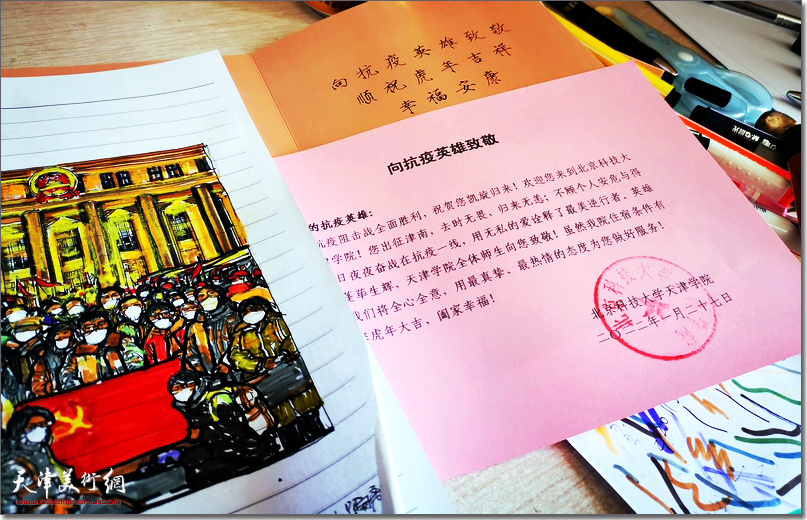 向抗疫英雄致敬
顺祝虎年吉祥
幸福安康
向抗疫英雄致敬
的抗疫英雄：
抗疫阻击战全面胜利，祝贺您凯旋归来！欢迎您来到北京科技大
学院！您出征津南，去时无畏，归来无恙；不顾个人安危与得
日夜夜奋战在抗疫一线，用无私的爱诠释了最美逆行者。英雄
蓬荜生辉，天津学院全体师生向您致敬！虽然我院住宿条件有
我们将全心全意，用最真挚、最热情的态度为您做好服务！
虎年大吉，阖家幸福！
北京科技大学天津学院
二〇二二年一月二十七日
天津美術網